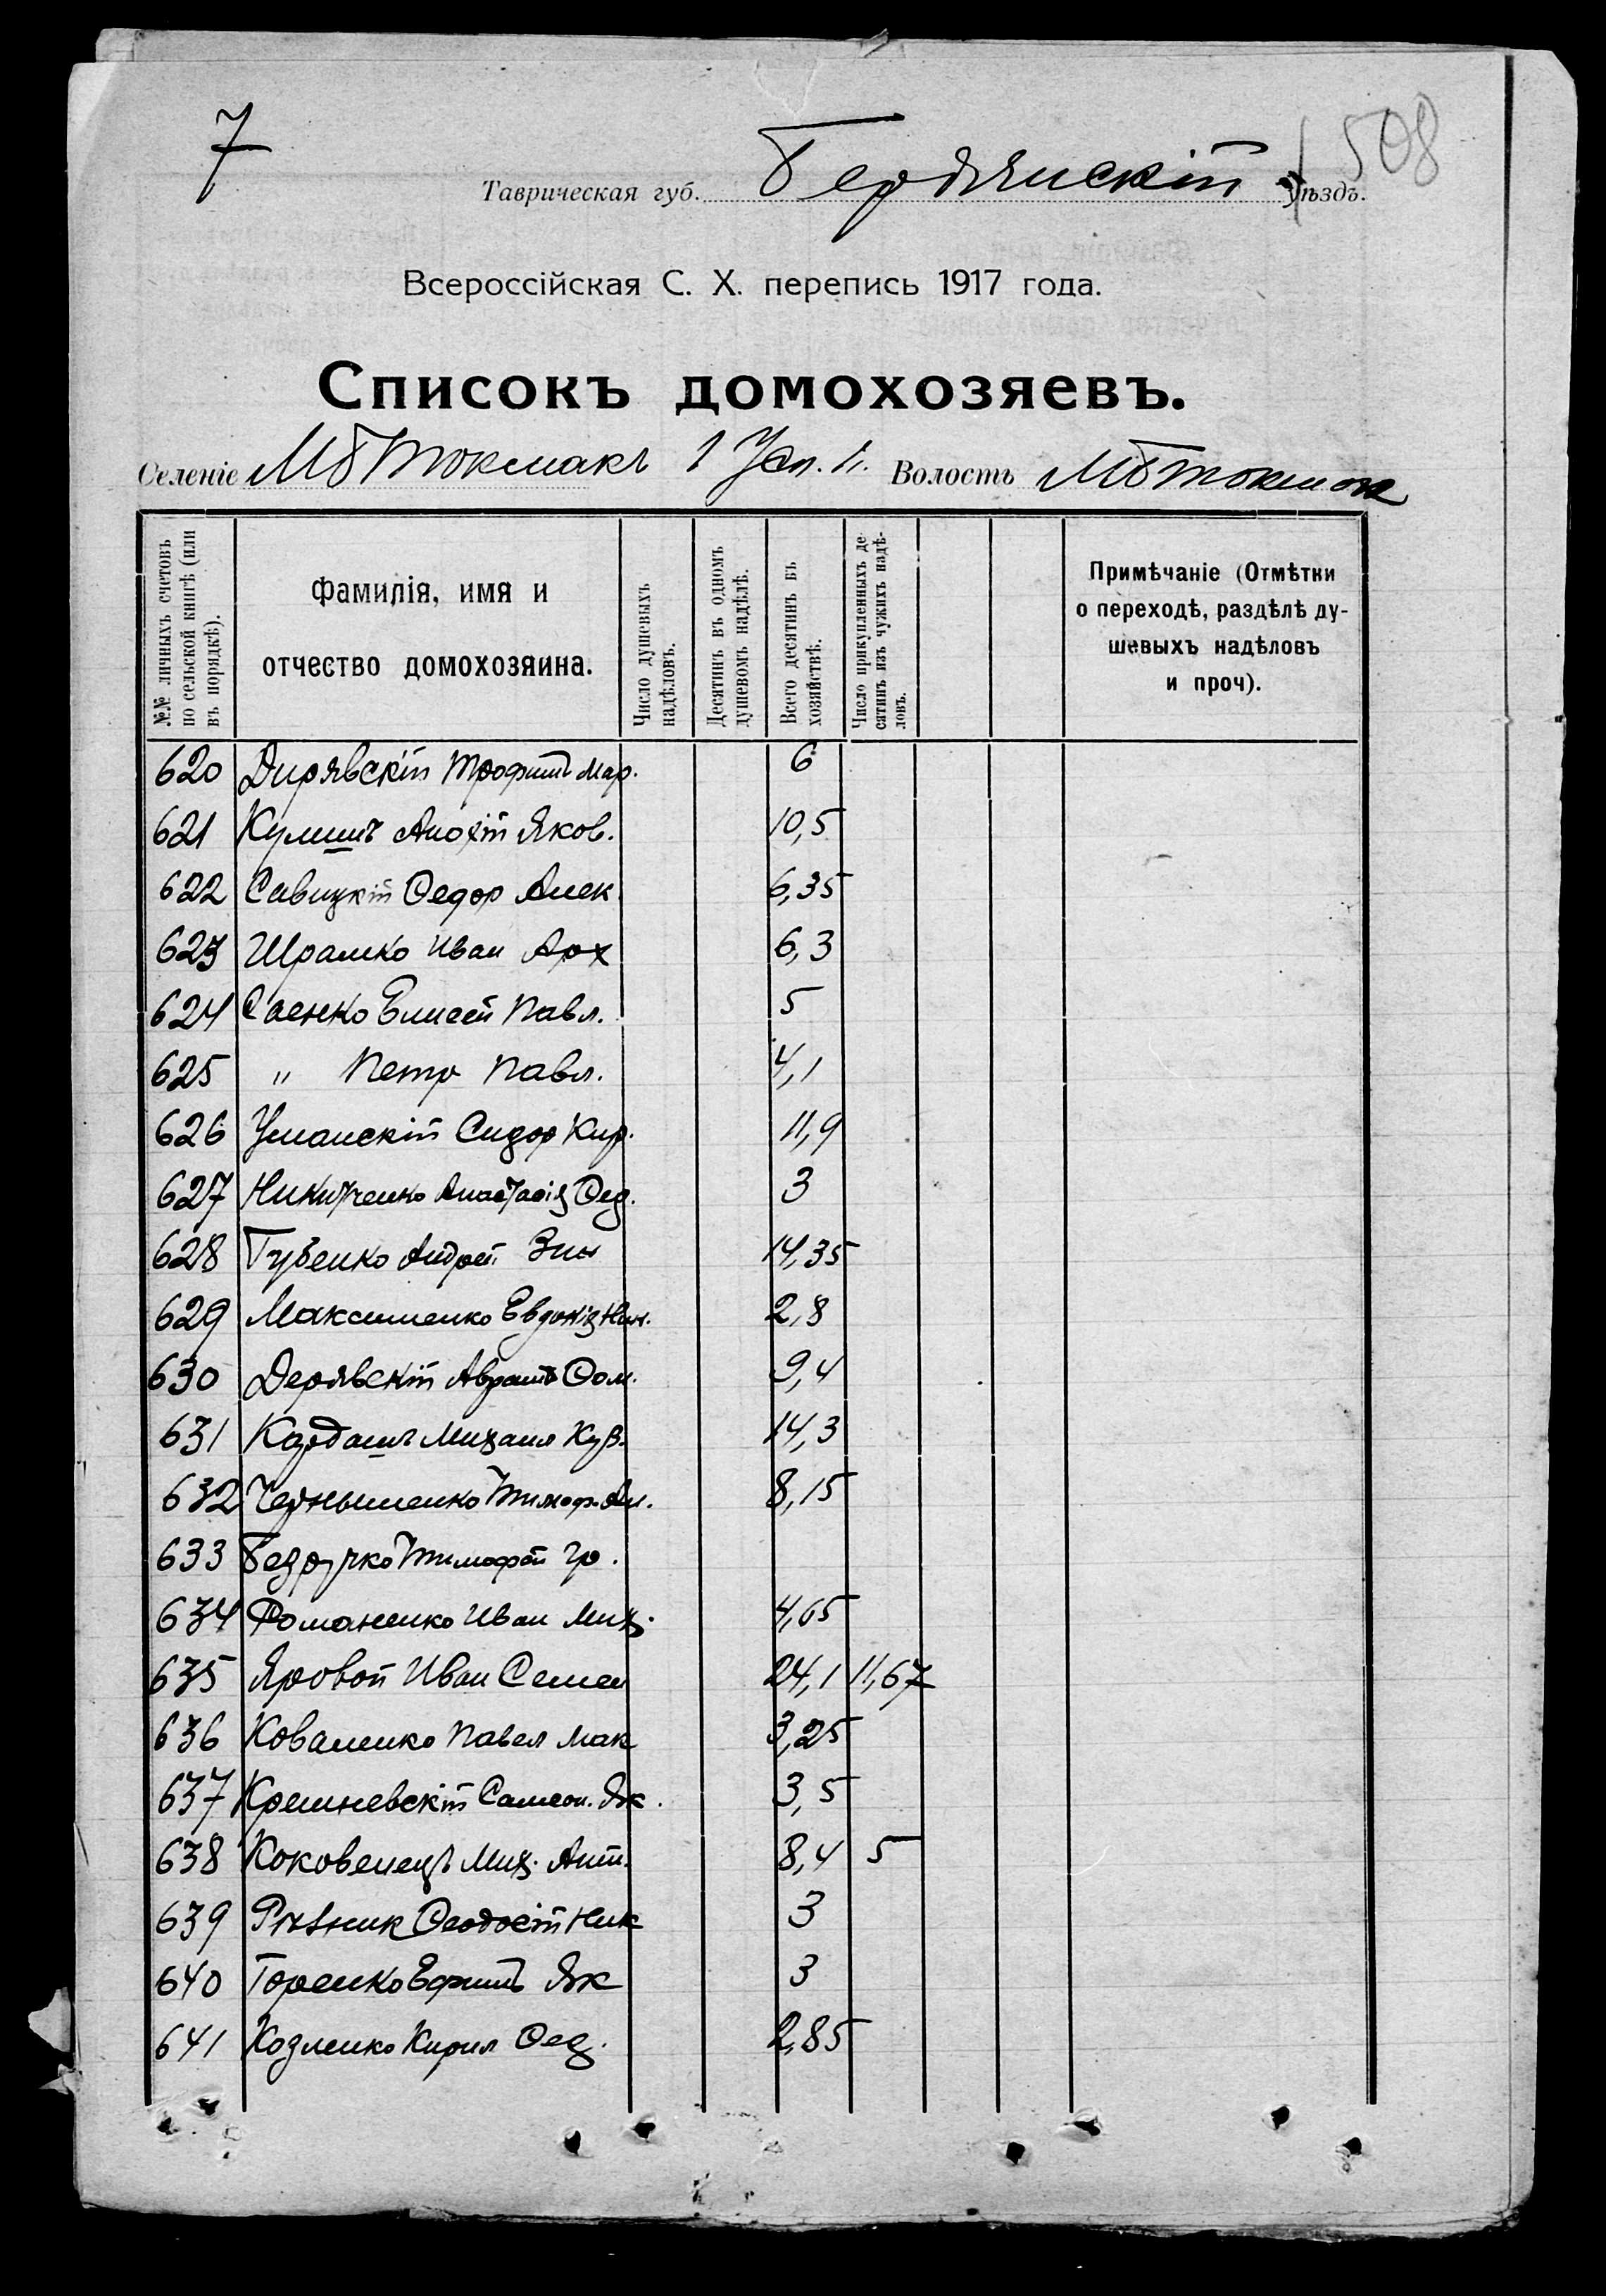 7
508
Таврическая губ. Бердянскій Уѣздъ.
Всероссійская С. Х. перепись 1917 года.
Списокъ домохозяевъ.
Селеніе МбТокмакъ 1 Волость МбТокмак
№№ личныхъ счетовъ по сельской книгѣ (или въ порядкѣ).
Фамилія, имя и отчество домохозяина.
Число душевыхъ надѣловъ.
Десятинъ въ одномъ душевомъ надѣлѣ.
Всего десятинъ въ хозяйствѣ.
Число прикупленныхъ десятинъ изъ чужихъ надѣловъ.
Примѣчаніе (Отмѣтки о переходѣ, раздѣлѣ душевыхъ надѣловъ и проч).
620 Дирявскій Трофимъ Мар. 6
621 Кулишъ Яков. 10,5
622 Савицкій Ѳедор Алек 6,35
623 Шрамко Иван Арх 6,3
624 Саенко Елисей Павл. 5
625 " Петр Павл. 4,1
626 Уманскій Сидор Кир. 11,9
627 Никитченко Анастасія Ѳед. 3
628 Губенко Андрей 14,35
629 Максименко Евдокія 2,8
630 Дерявскій Аврамъ Ѳом. 9,4
631 Кардашъ Михаил Куз. 14,3
632 Чернышенко Тимоф. 8,15
633 Безручко Тимофей Гр.
634 Романенко Иван Мих. 4,65
635 Яровой Иван Семен 24,1 11,67
636 Коваленко Павел Мак 3,25
637 Кремневскій Самсон. Як. 3,5
638 Коковенецъ Мих. Ант. 8,4 5
639 Рѣзник Ѳеодосій Ник 3
640 Горенко Ефимъ Як 3
641 Козленко Кирил Ѳед. 2,85